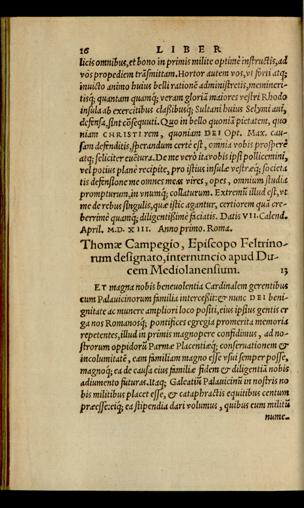 16 LIBER
licis omnibus, et bono in primis milite optimè instructis, ad
vos propediem trāsmittam. Hortor autem vos, vt forti atq;
inuicto animo huius belli rationē administretis, memineri-
tisq; quantam quamq; veram gloriā maiores vestri Rhodo
insula ab exercitibus classibusq; Sultani huius Selymi aui,
defensa, sint cōsequuti. Quo in bello quoniā pietatem, quo
niam CHRISTI rem, quoniam DEI Opt. Max. cau-
sam defenditis, sperandum certè est, omnia vobis prosperè
atq; feliciter euētura. De me verò ita vobis ipsi pollicemini,
vel potius planè recipite, pro istius insulæ vestræq; societa
tis defensione me omnes meas vires, opes, omnium studia
prompturum, in vnumq; collaturum. Extremū illud est, vt
me de rebus singulis, quæ istic agantur, certiorem quā cre-
berrimè quamq; diligentissimè faciatis. Datis VII. Calend.
April. M.D.XIII. Anno primo. Roma.
Thomæ Campegio, Episcopo Feltrino-
rum designato, internuncio apud Du-
cem Mediolanensium. 13
ET magna nobis beneuolentia Cardinalem gerentibus
cum Palauicinorum familia intercessit: & nunc DEI beni-
gnitate ac munere ampliori loco positi, eius ipsius gentis er
ga nos Romanosq; pontifices egregia promerita memoria
repetentes, illud in primis magnopere confidimus, ad no-
strorum oppidorū Parmæ Placentiæq; conseruationem &
incolumitatē, eam familiam magno esse vsui semper posse,
magnoq; ea de causa eius familiæ fidem & diligentiā nobis
adiumento futuras. Itaq; Galeatiū Palauicinū in nostris no
bis militibus placet esse, & cataphractis equitibus centum
præesse: eiq; ea stipendia dari volumus, quibus eum militū
nume-